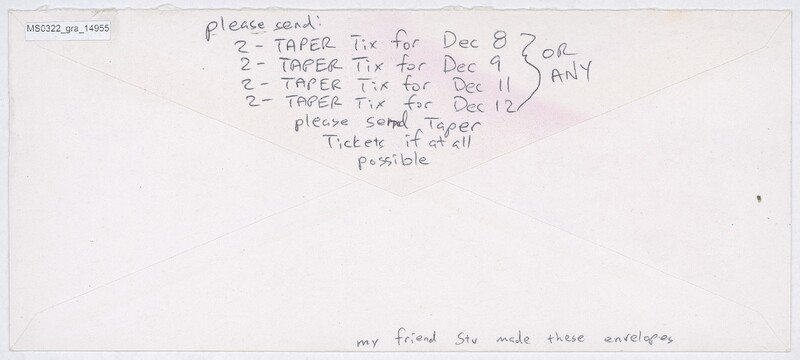 MS0322_gra_14955
please send:
2 - TAPER Tix for Dec 8
2 - TAPER Tix for Dec 9
2 - TAPER Tix for Dec 11
2 - TAPER Tix for Dec 12
OR
ANY
please send Taper
Tickets if at all
possible
my friend Stu made these envelopes